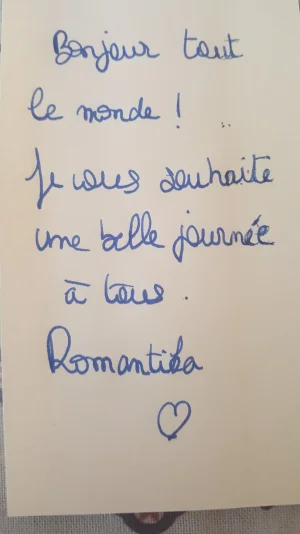 Bonjour tout
le monde !
Je vous souhaite
une belle journée
à tous .
Romantika
♡